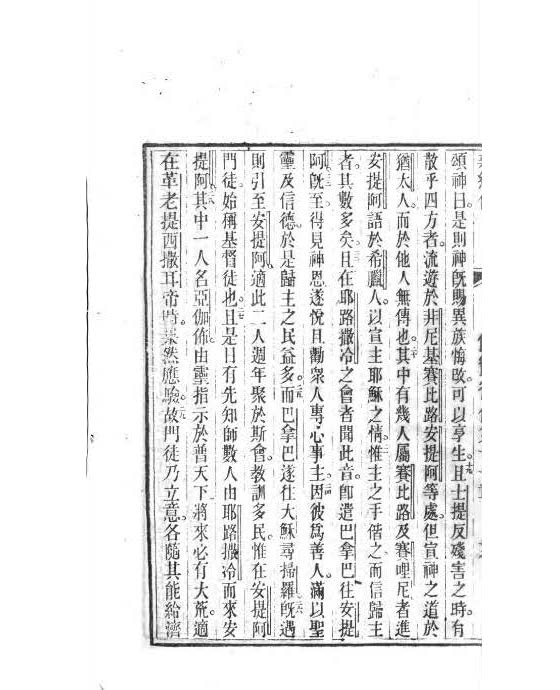 頌神曰是則神旣賜異族悔改可以享生且士提反殘害之時。有
散乎四方者。流遊於非尼基賽比路安提阿等處。但宣神之道於
猶太人。而於他人無傳也。其中有幾人屬賽比路及賽哩尼者進
安提阿語於希臘人。以宣主耶穌之情。惟主之手偕之。而信歸主
者。其數多矣。且在耶路撒冷之會者聞此音。卽遣巴拿巴往安提
阿。旣至得見神恩遂悅且勸衆人專心事主。因彼爲善人。滿以聖
靈及信德。於是歸主之民益多。而巴拿巴遂往大穌尋掃羅旣遇
則引至安提阿適此二人週年聚於斯會。敎訓多民。惟在安提阿
門徒。始稱基督徒也。且是日有先知師數人由耶路撒冷而來安
提阿。其中一人名亞伽佈由靈指示於普天下將來必有大荒。適
在革老提西撒耳帝時。果然應驗。故門徒乃立意。各隨其能給濟